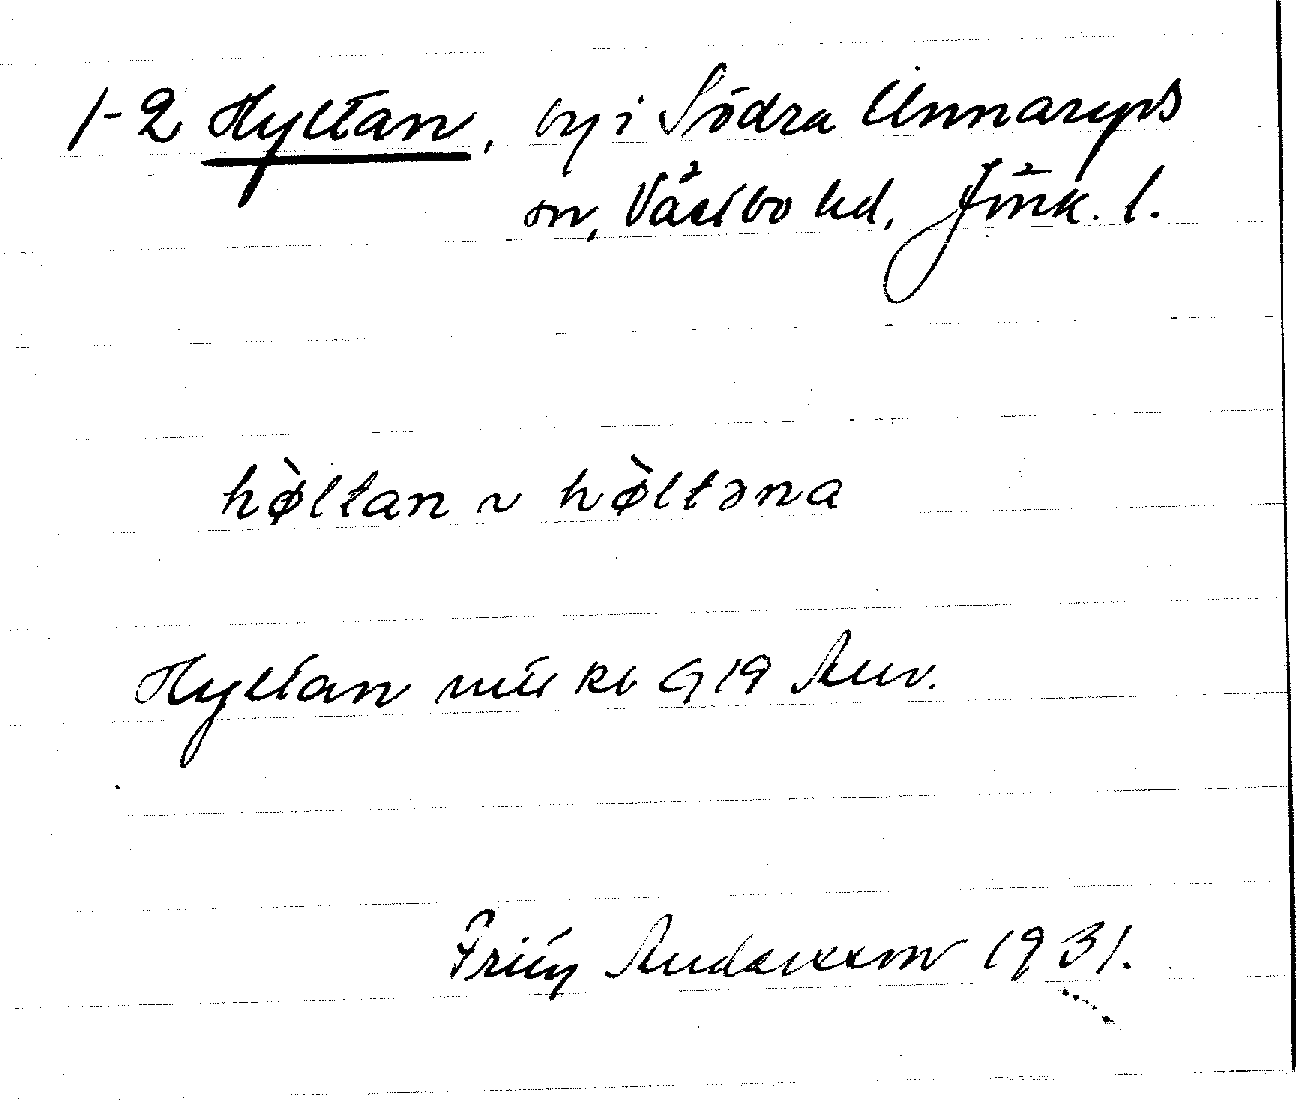 1-2 Hyltan, by i Södra Unnaryds
sn, Västbo hd, Jönk. l.
hø̀ltan ~ hø̀ltəna
Hyltan
Fritz Andersson 1931.